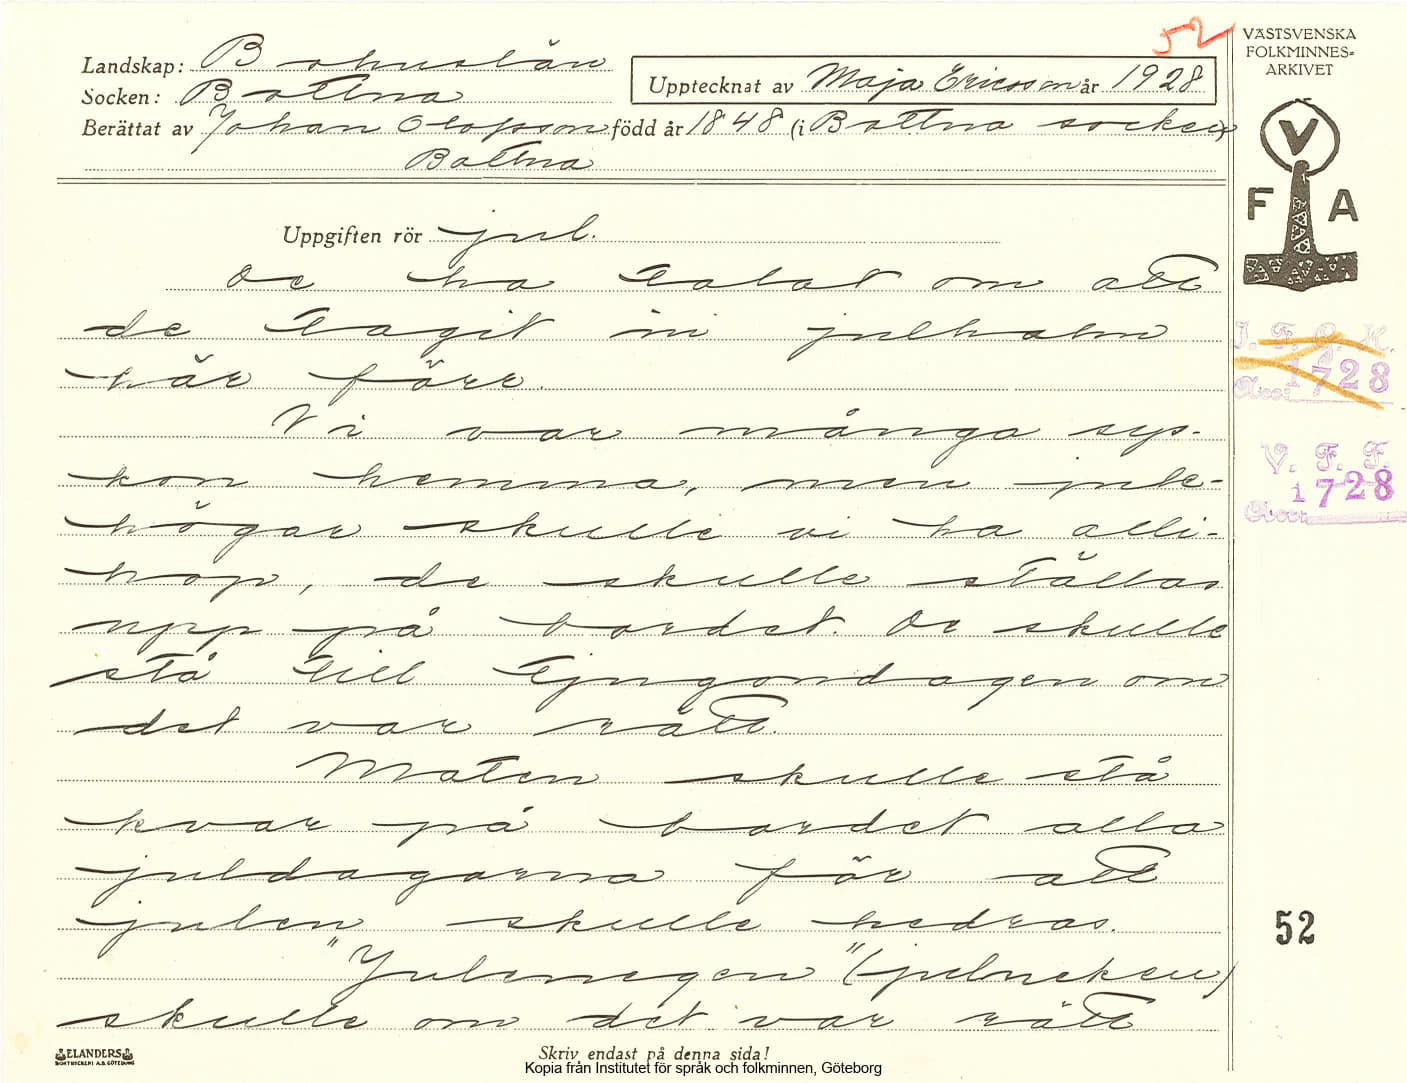 52
VÄSTSVENSKA
FOLKMINNES-
ARKIVET
Landskap: Bohuslän
Socken: Bottna
Upptecknat av Maja Ericsson år 1928
Berättat av Johan Olofsson född år 1848 (i Bottna socken)
Bottna
V
F A
Uppgiften rör jul.
De ha talat om att
de tagit in julhalm
här förr.
Vi var många sys-
kon hemma, men jule-
högar skulle vi ha alli-
hop, de skulle ställas
upp på bordet. De skulle
stå till tjugondagen om
det var rätt.
Maten skulle stå
kvar på bordet alla
juldagarna för att
julen skulle hedras.
"Julenegen" (julneken)
skulle om det var rätt
I. F. G. H.
Acc: 1728
V. F. F.
1728
Acc:
52
ELANDERS
BOKTRYCKERI A.B. GÖTEBORG
Skriv endast på denna sida!
Kopia från Institutet för språk och folkminnen, Göteborg